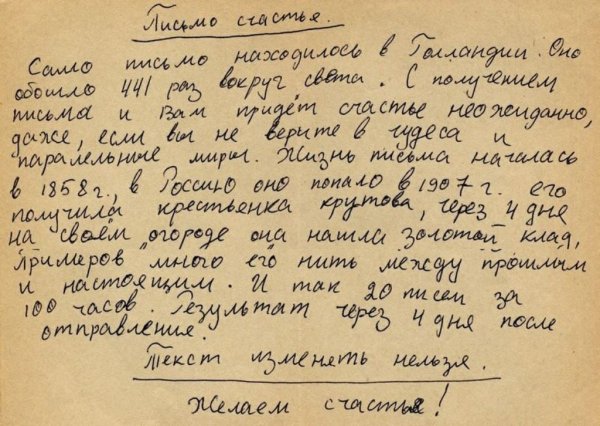 Письмо счастья.
Само письмо находилось в Голландии. Оно
обошло 441 раз вокруг света. С получением
письма и Вам придёт счастье неожиданно,
даже, если вы не верите в чудеса и
паралельные миры. Жизнь письма началась
в 1858 г., в Россию оно попало в 1907 г. его
получила крестьенка крутова, через 4 дня
на своём огороде она нашла золотой клад,
примеров много его нить между прошлым
и настоящим. И так 20 писем за
100 часов. Результат через 4 дня после
отправления.
Текст изменять нельзя.
Желаем счастья!